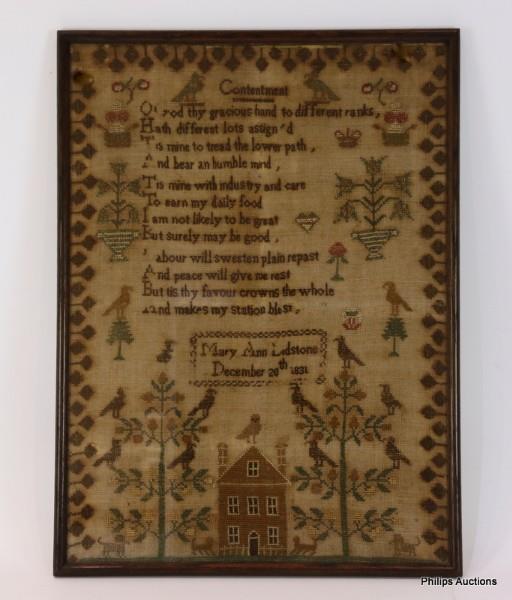 Contentment
O god thy gracious hand to different ranks,
Hath different lots assign'd
Tis mine to tread the lower path,
And bear an humble mind,
Tis mine with industry and care
To earn my daily food
I am not likely to be great
But surely may be good,
abour will sweeten plain repast
And peace will give me rest
But tis thy favour crowns the whole
And makes my station blest,
Mary Ann Ledstone
December 20th 1831
Philips Auctions